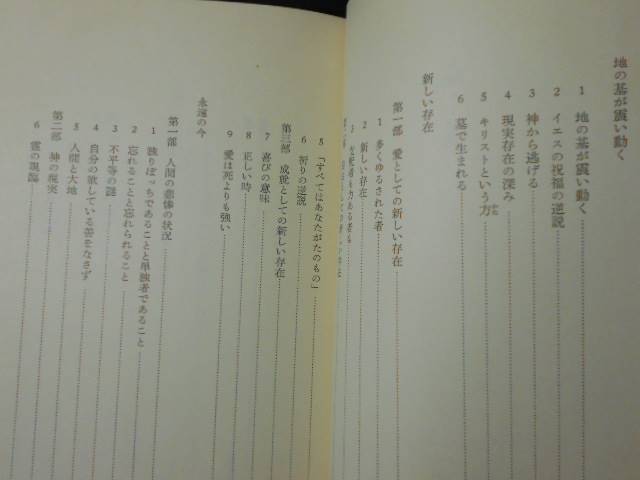 地の基が震い動く
1 地の基が震い動く
2 イエスの祝福の逆説
3 神から逃げる
4 現実存在の深み
5 キリストという方 かた
6 墓で生まれる
新しい存在
第一部 愛としての新しい存在
1 多くゆるされた者
2 新しい存在
3
5 「すべてはあなたがたのもの」
6 祈りの逆説
第三部 成就としての新しい存在
7 喜びの意味
8 正しい時
9 愛は死よりも強い
永遠の今
第一部 人間の悲惨の状況
1 独りぼっちであることと単独者であること
2 忘れることと忘れられること
3 不平等の謎
4 自分の欲している善をなさず
5 人間と大地
第二部 神の現実
6 霊の現臨